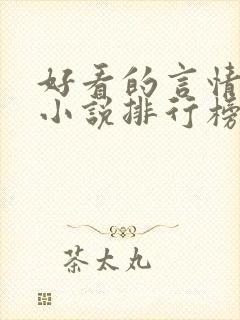 好看的言情
小说排行榜
茶太丸